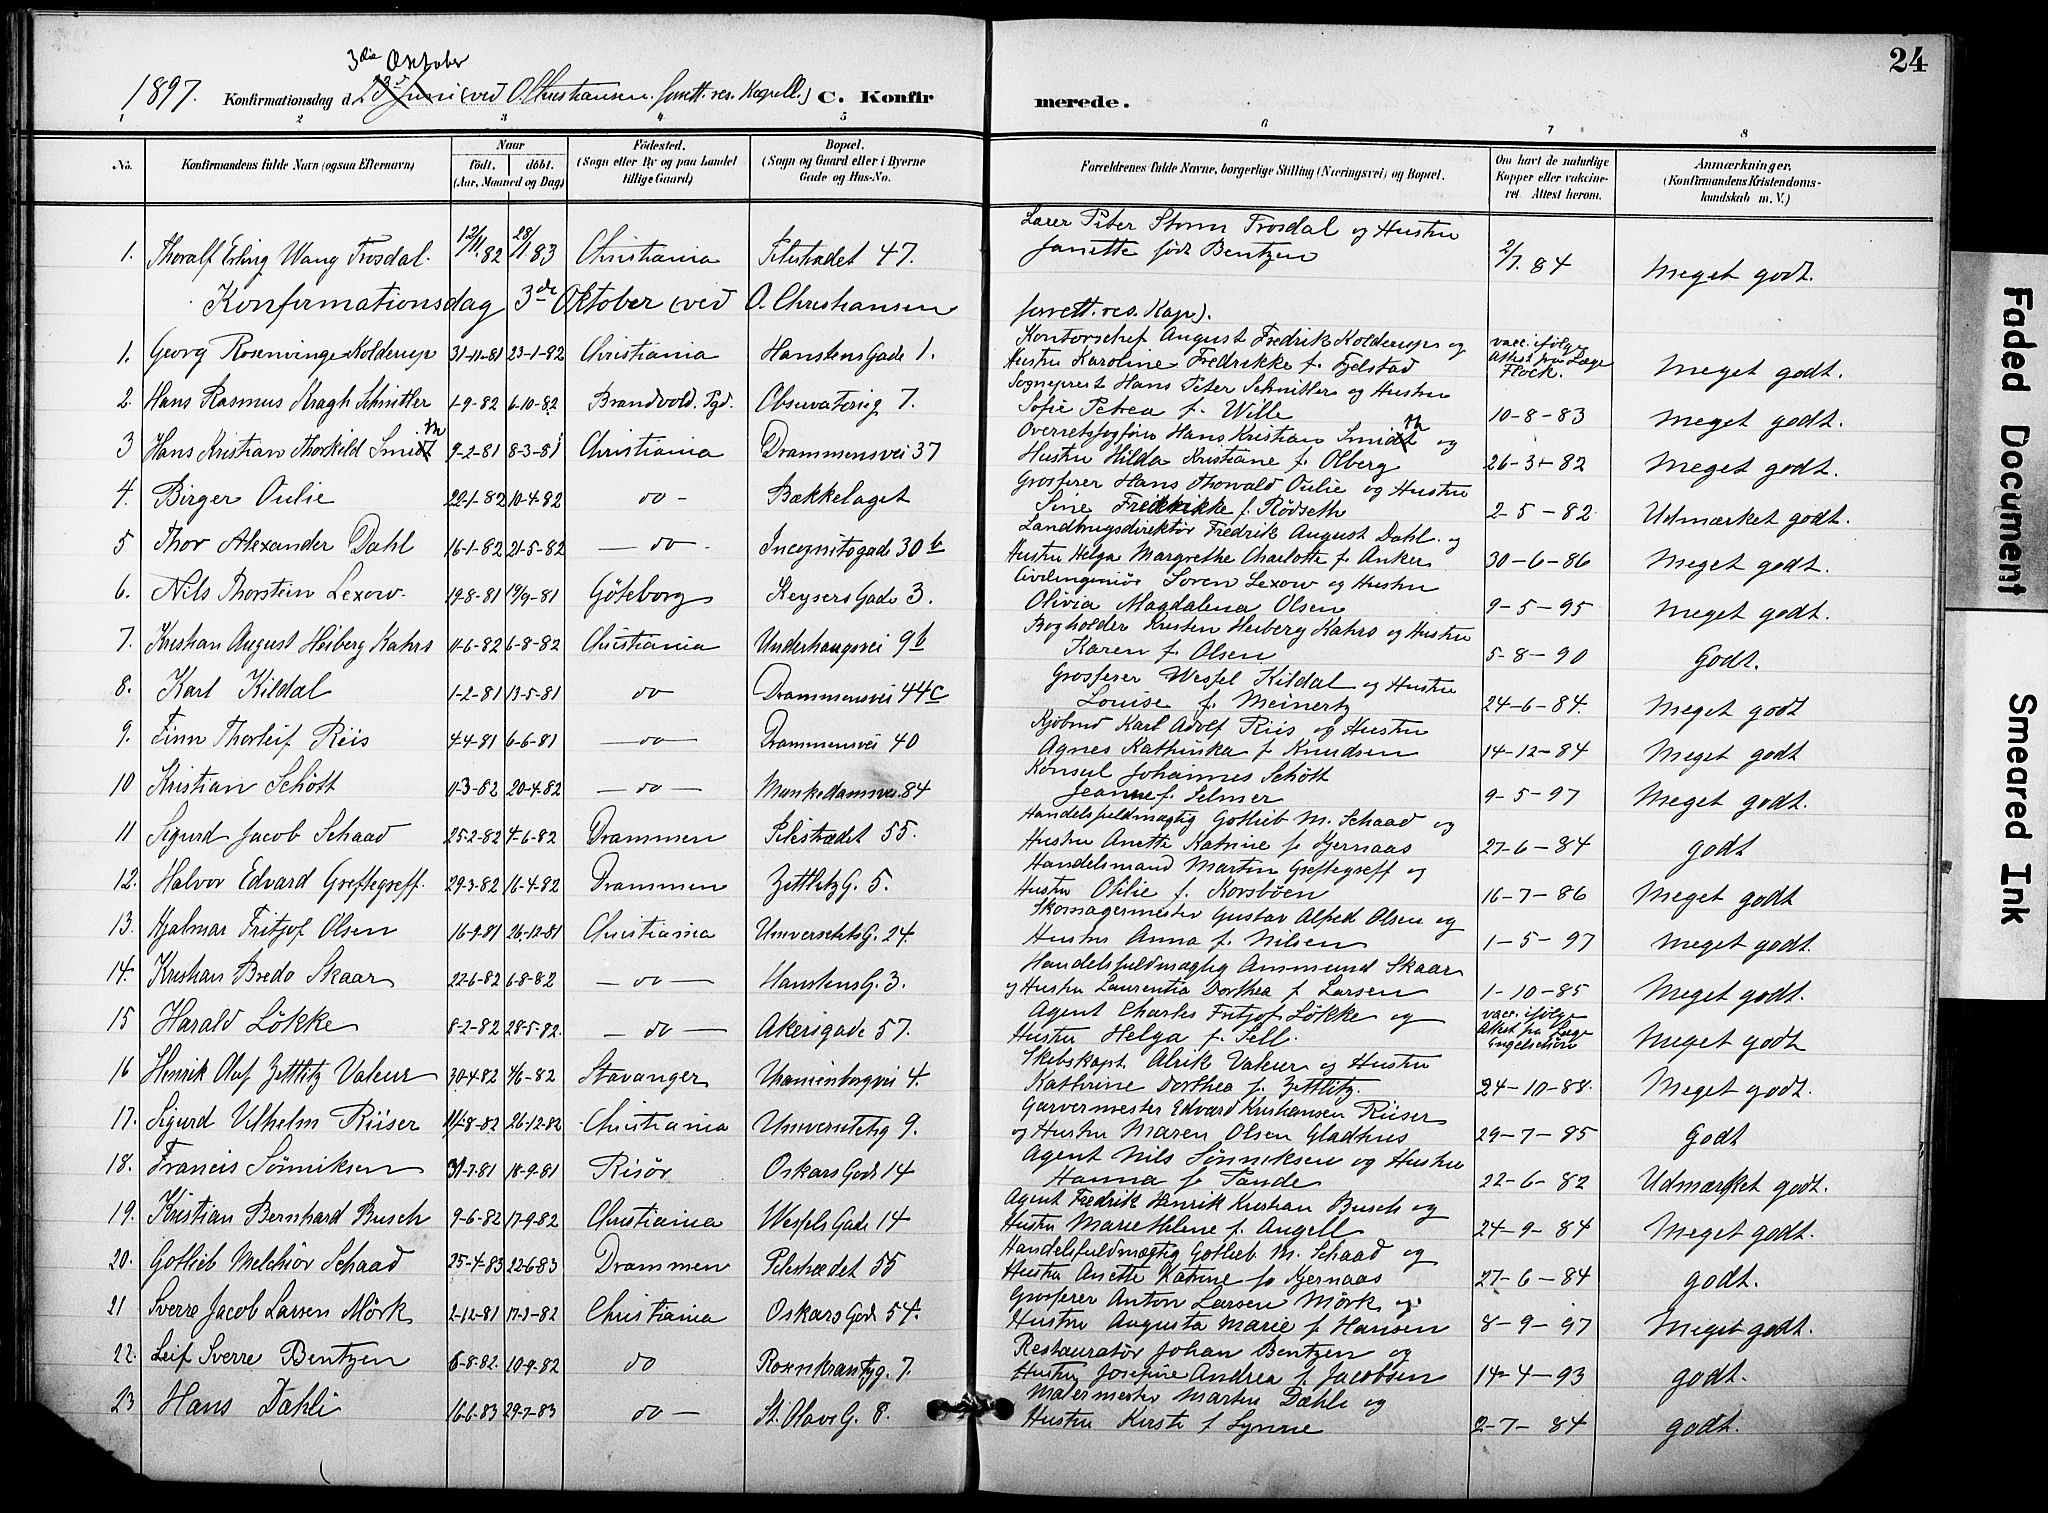 24
3die Oktober
1897. Konfirmationsdag d. 13de Juni (ved O. Christiansen forrett. res. Kapell.) C. Konfirmerede.
1 2 3 4 5 6 7 8
No. Konfirmandens fulde Navn (ogsaa Efternavn) Naar födt. döbt. (Aar, Maaned og Dag) Födested. (Sogn eller By og paa Landet tillige Gaard) Bopæl. (Sogn og Gaard eller i Byerne Gade og Hus-No. Forældrenes fulde Navne, borgerlige Stilling (Næringsvei) og Bopæl. Om havt de naturlige Kopper eller vaccineret. Attest herom. Anmærkninger. (Konfirmandens Kristendomskundskab m. V.)
Lærer Peter Storm Trosdal og Hustru
1. Thoralf Erling Wang Trosdal. 12/11.82 28/1 83 Christiania Pilestrædet 47. Janette født Bentzen 2/7. 84 Meget godt.
Konfirmationsdag 3de Oktober (ved O. Christiansen forrett. res. Kap).
Kontorschef August Fredrik Kolderup og
1. Georg Rosenvinge Kolderup 31-11-81 23-1-82 Christiania Hanstens Gade 1. Hustru Karoline Fredrikke f. Fjelstad vacc. ifølge Attest fra Læge Flock. Meget godt.
Sogneprest Hans Peter Schnitler og Hustru
2. Hans Rasmus Kragh Schnitler 1-9-82 6-10-82 Brandvold. Pgd. Observatorieg 7. Sofie Petrea f. Wille 10-8-83 Meget godt.
Overretssagfører Hans Kristian Smith og
3 Hans Kristian Thorkild Smith 9-2-81 8-3-81 Christiania Drammensvei 37 Hustru Hilda Kristiane f. Olberg 26-3-82 Meget godt.
Grosserer Hans Thorvald Oulie og Hustru
4. Birger Oulie 22-1-82 10-4-82 do - Bækkelaget Sine Fredrikke f. Rödseth 2-5-82 Udmærket godt.
Landbrugsdirektör Fredrik August Dahl og
5 Thor Alexander Dahl 16-1-82 21-5-82 do Incognitogade 30 b Hustru Helga Margrethe Charlotte f. Anker 30-6-86 Meget godt.
Civilingeniør Søren Lexow og Hustru
6. Nils Thorstein Lexow 19-8-81 19/9-81 Göteborg Keysers Gade 3. Olivia Magdalena Olsen 9-5-95 Meget godt.
Bogholder Kristen Heiberg Kahrs og Hustru
7. Kristian August Heiberg Kahrs 11-6-82 6-8-82 Christiania Underhaugsvei 9 b Karen f. Olsen 5-8-90 Godt.
Grosserer Wessel Kildal og Hustru
8. Karl Kildal 1-2-81 13-5-81 do Drammensvei 44 c Louise f. Meinertz 24-6-84. Meget godt
Kjøbmd Karl Adolf Riis og Hustru
9. Finn Thorleif Riis 4-4-81 6-6-81 do Drammensvei 40 Agnes Kathinka f. Knudsen 14-12-84 Meget godt
Konsul Johannes Schött
10 Kristian Schött 11-3-82 20-4-82 do Munkedamsvei 84 Jeanne f. Selmer 9-5-97 Meget godt.
Handelsfuldmægtig Gotlieb M. Schaad og
11 Sigurd Jacob Schaad 25-2-82 4-6-82 Drammen Pilestrædet 55. Hustru Anette Katrine f. Gjernaas 27-6-84 godt
Handelsmand Martin Greftegreff og
12. Halvor Edvard Greftegreff. 29-3-82 16-4-82 Drammen Zettlitz G. 5. Hustru Otilie f. Korsböen 16-7-86 Meget godt
Skomagermester Gustav Alfred Olsen og
13. Hjalmar Fritjof Olsen 16-9-81 26-12-81 Christiania Universitets G. 24. Hustru Anna f. Nilsen 1-5-97 Meget godt.
Handelsfuldmægtig Ammund Skaar
14. Kristian Bredo Skaar 22-6-82 6-8-82 do Hanstens G. 3. og Hustru Laurentia Dorthea f. Larsen 1-10-85 Meget godt.
Agent Charles Fritjof Lökke og
15 Harald Lökke 8-2-82 28-5-82. do Akersgade 57. Hustru Helga f. Sell. vacc. ifølge Attest fra Læge Engelschiøn Meget godt
Skibskapt. Alrik Valeur og Hustru
16 Henrik Olaf Zettlitz Valeur 30-4-82 4/6-82 Stavanger Uranienborgvei 4. Kathrine Dorthea f. Zettlitz 24-10-88. Meget godt.
Garvermester Edvard Kristiansen Riiser
17. Sigurd Vilhelm Riiser 11-8-82 26-12-82 Christiania Universitetsg 9. og Hustru Maren Olsen Gladhus 29-7-85 Godt
Agent Nils Sönniksen og Hustru
18. Francis Sönniksen 31-7-81 18-9-81 Risör Oskars Gade 14 Hanna f. Tande 22-6-82 Udmærket godt.
Agent Fredrik Henrik Kristian Busch og
19. Kristian Bernhard Busch 9-6-82 17-9-82 Christiania Wessels Gade 14 Hustru Marie Helene f. Angell 24-9-84 Meget godt.
Handelsfuldmægtig Gotlieb M. Schaad og
20. Gotlieb Melchior Schaad 25-4-83 22-6-83 Drammen Pilestrædet 55 Hustru Anette Katrine f. Gjernaas 27-6-84 godt.
Grosserer Anton Larsen Mörk og
21 Sverre Jacob Larsen Mörk 2-12-81 17-3-82 Christiania Oskars Gade 54. Hustru Augusta Marie f. Hansen 8-9-97 Meget godt.
Restauratör Johan Bentzen og
22. Leif Sverre Bentzen 6-8-82. 10-9-82 do Rosenkrantzg. 7. Hustru Josefine Andrea f. Jacobsen 14-4-93 godt.
Malermester Martin Dæhli og
23 Hans Dæhli 16-6-83 29-7-83 do St. Olavs G. 8. Hustru Kirsti f. Lynne 2-7-84 godt.
Faded Document
Smeared Ink